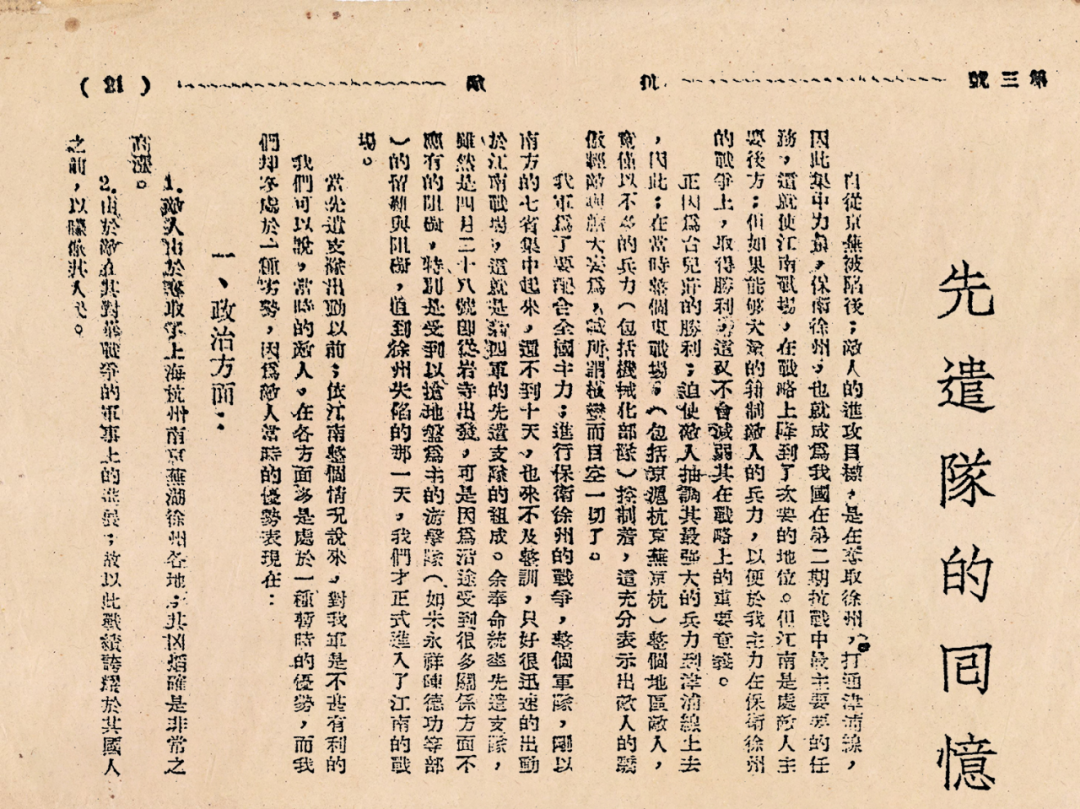 第三號
抗
敵
(21)
先遣隊的回憶
自從京蕪被陷後；敵人的進攻目標，是在奪取徐州，打通津浦線，
因此集中力量，保衛徐州，也就成爲我國在第二期抗戰中最主要的任
務，這就使江南戰場，在戰略上降到了次要的地位。但江南是處敵人主
要後方；但如果能够大量的箝制敵人的兵力，以便於我主力在保衛徐州
的戰爭上，取得勝利，這又不會減弱其在戰略上的重要意義。
正因爲台兒莊的勝利；迫使敵人抽調其最强大的兵力到津浦線上去
，因此；在當時整個東戰場；（包括京滬杭京蕪京杭）整個地區敵人，
竟僅以不多的兵力（包括機械化部隊）控制着，這充分表示出敵人的驕
傲輕敵與膽大妄爲，誠所謂橫蠻而目空一切了。
我軍爲了要配合全國主力；進行保衛徐州的戰爭，整個軍隊，剛以
南方的七省集中起來，還不到十天，也來不及整訓，只好很迅速的出動
於江南戰場，這就是新四軍的先遣支隊的組成。余奉命統率先遣支隊，
雖然是四月二十八號卽從岩寺出發，可是因爲沿途受到很多關係方面不
應有的阻礙，特別是受到以搶地盤爲主的游擊隊（如朱永祥陳德功等部
）的留難與阻礙，直到徐州失陷的那一天，我們才正式進入了江南的戰
場。
當先遣支隊出動以前；依江南整個情况說來，對我軍是不甚有利的
我們可以說，當時的敵人。在各方面多是處於一種暫時的優勢，而我
們却多處於一種劣勢，因爲敵人當時的優勢表現在：
一、政治方面：
1.敵人由於奪取了上海杭州南京蕪湖徐州各地；其凶焰確是非常之
高漲。
2.由於敵在其對華戰爭的軍事上的進展；故以此戰績誇耀於其國人
之前，以矇㒒其人民。